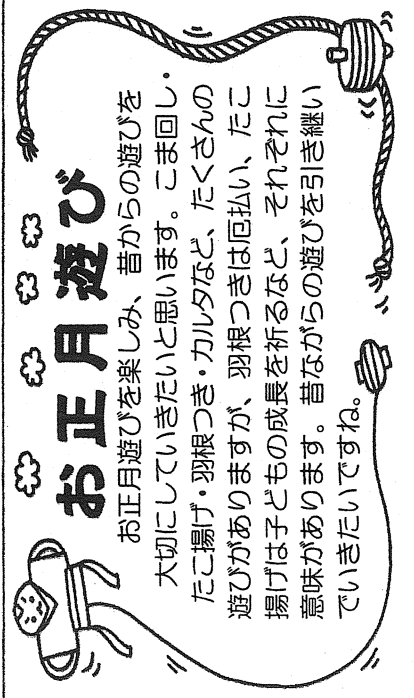 お正月遊び
お正月遊びを楽しみ、昔からの遊びを
大切にしていきたいと思います。こま回し・
たこ揚げ・羽根つき・カルタなど、たくさんの
遊びがありますが、羽根つきは厄払い、たこ
揚げは子どもの成長を祈るなど、それぞれに
意味があります。昔ながらの遊びを引き継い
でいきたいですね。